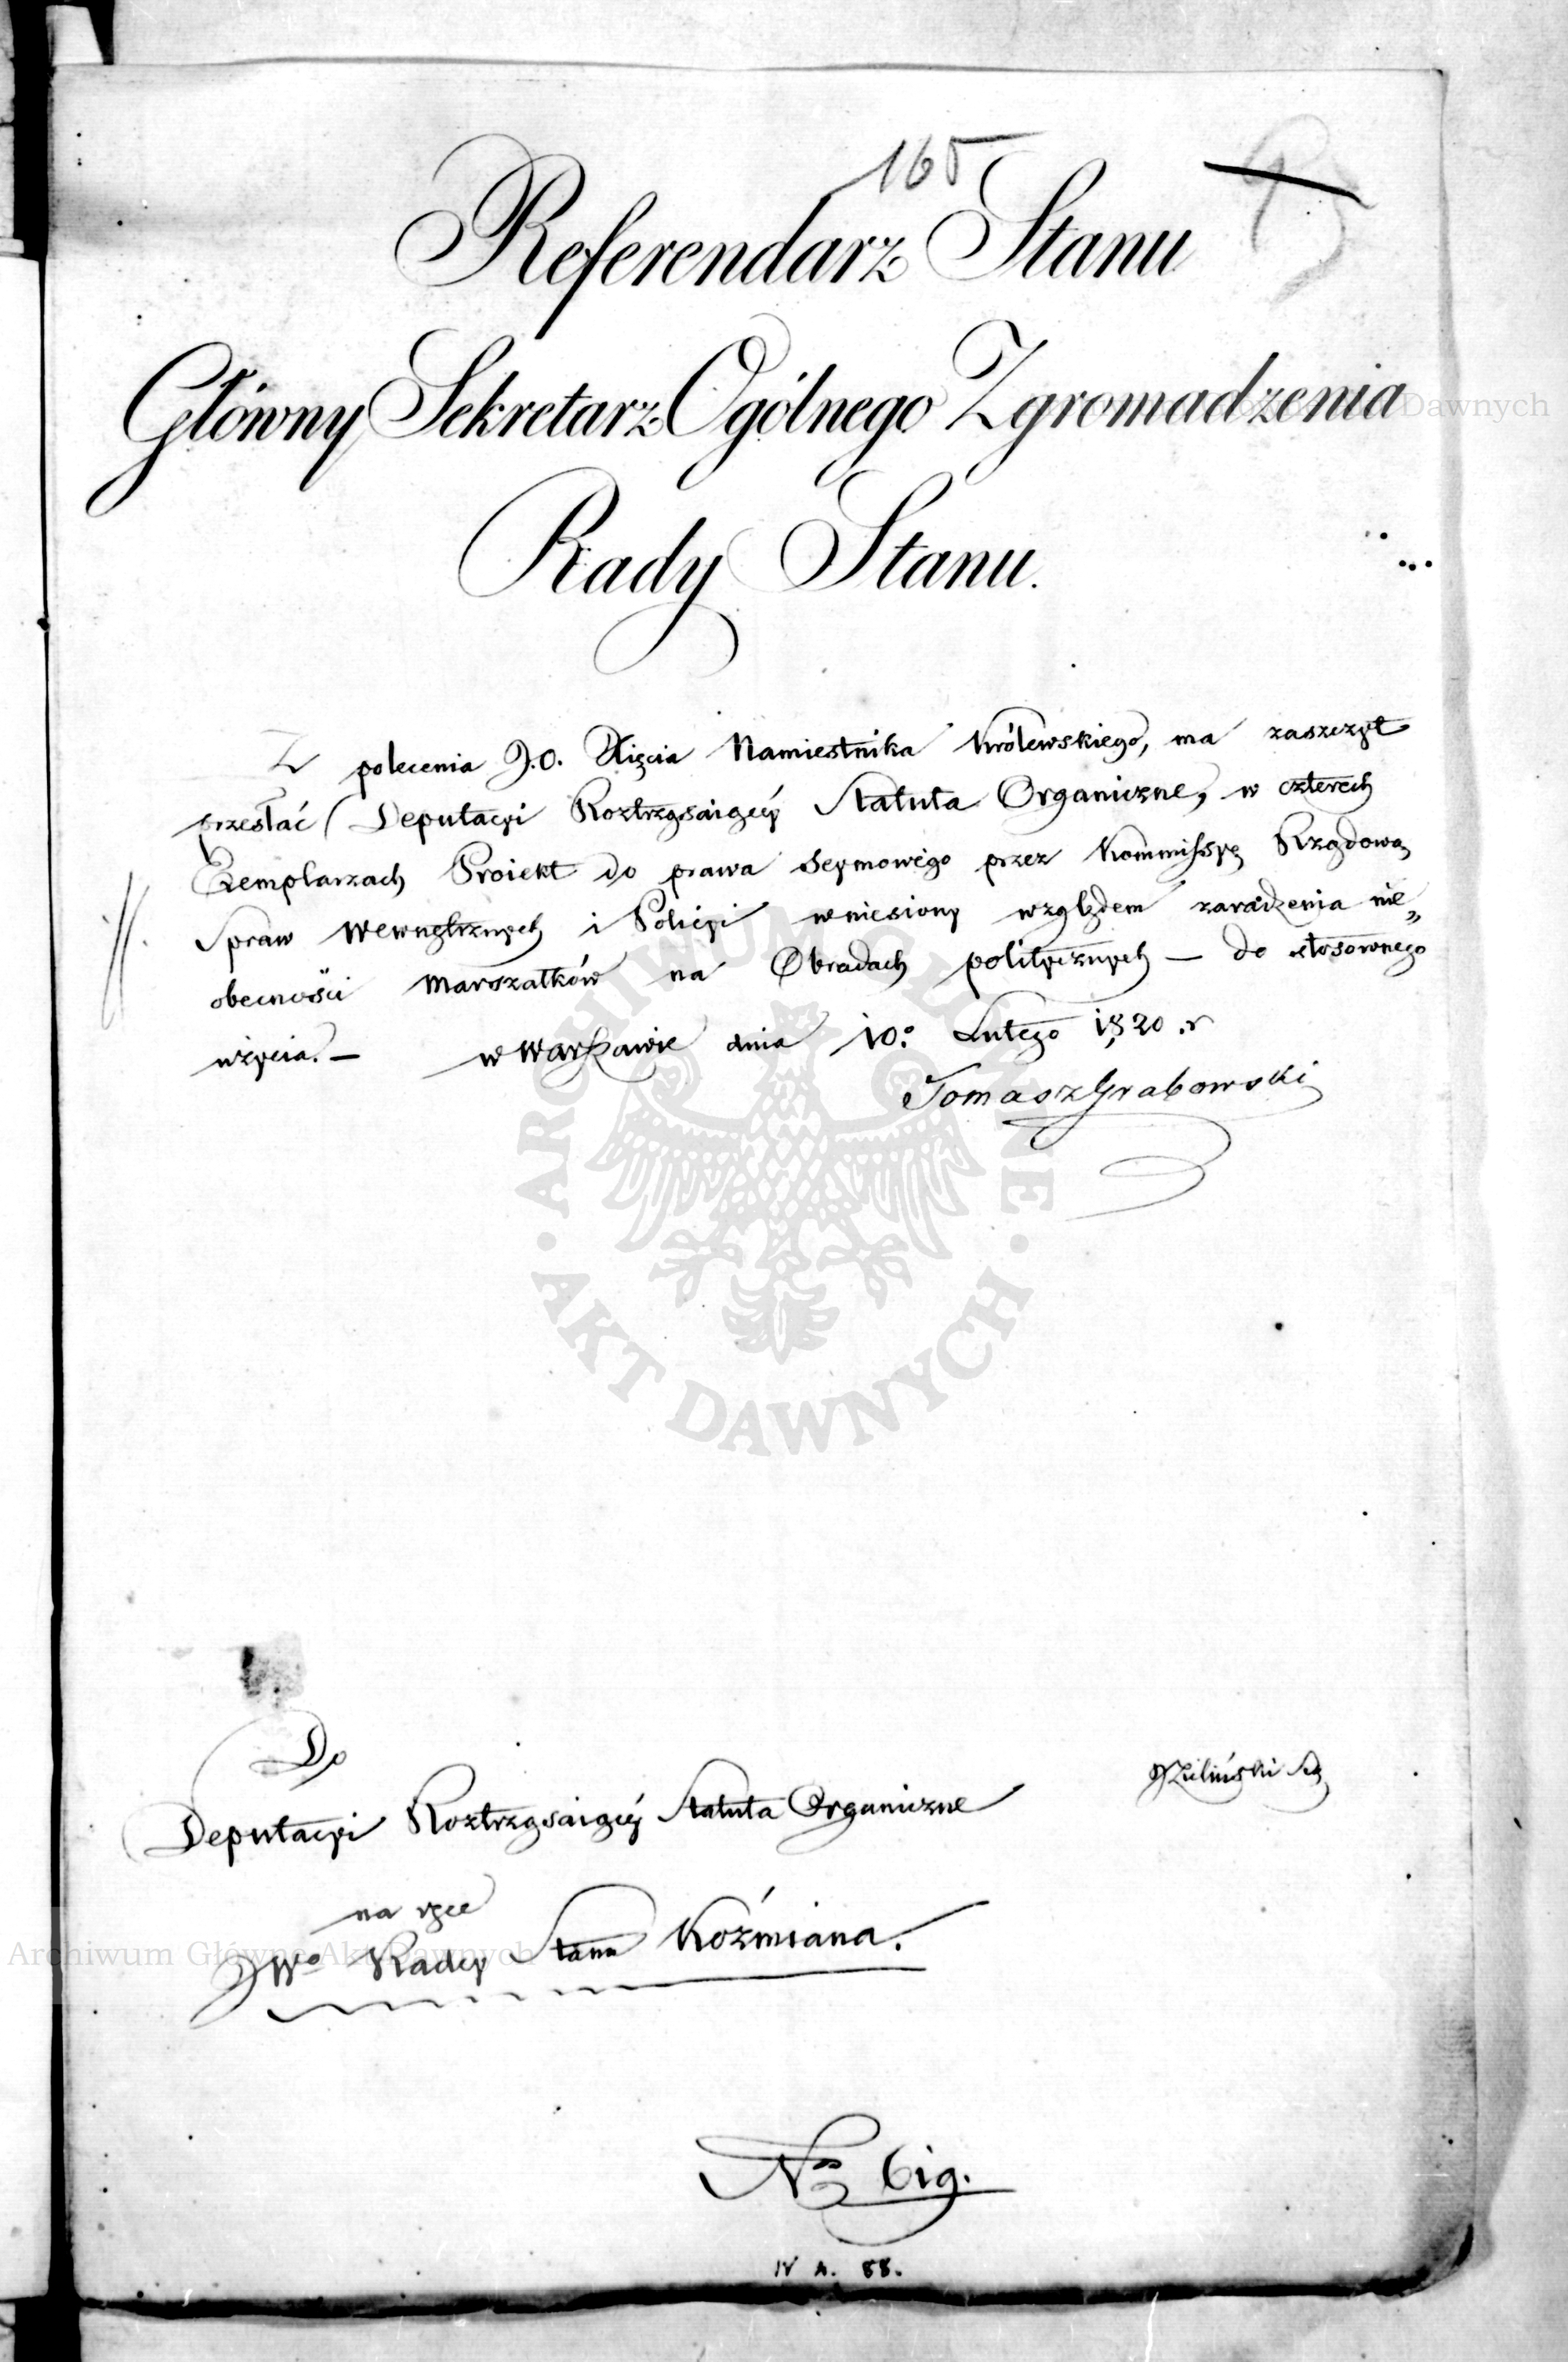 165
Referendarz Stanu
Główny Sekretarz Ogólnego Zgromadzenia
Rady Stanu.
Z polecenia J.O. Xięcia Namiestnika Królewskiego, ma zaszczyt
przesłać Deputacyi Roztrząsaiącéy Statuta Organiczne, w czterech
Exemplarzach Proiekt do prawa Seymowégo przez Kommissyę Rządową
Spraw Wewnętrznych i Policyi wniesiony względem zaradzenia nie„
obecności Marszałków na Obradach politycznych — do stosownego
użycia. — w Warszawie dnia 10o. Lutego 1820. r
Tomasz Grabowski
Do
Deputacyi Roztrząsaiącéy Statuta Organiczne
na ręce
JWo Radcy Stanu Koźmiana.
Zieliński
No 619.
IV A. 88.
ARCHIWUM GŁÓWNE
AKT DAWNYCH
Archiwum Główne Akt Dawnych
Dawnych